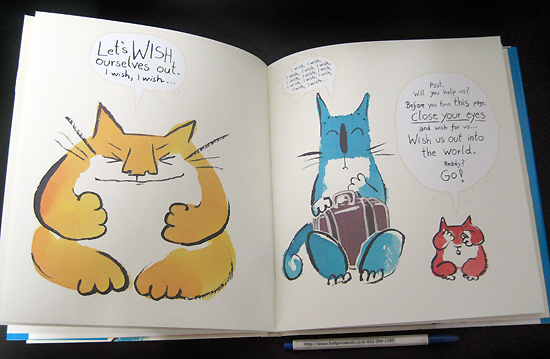 Let's WISH
ourselves out.
I wish, I wish...
I wish, I wish,
I wish, I wish, I wish,
I wish, I wish, I wish,
I wish, I wish,
I wish...
Psst.
Will you help us?
Before you turn this page,
Close your eyes
and wish for us...
Wish us out into
the world.
Ready?
Go!